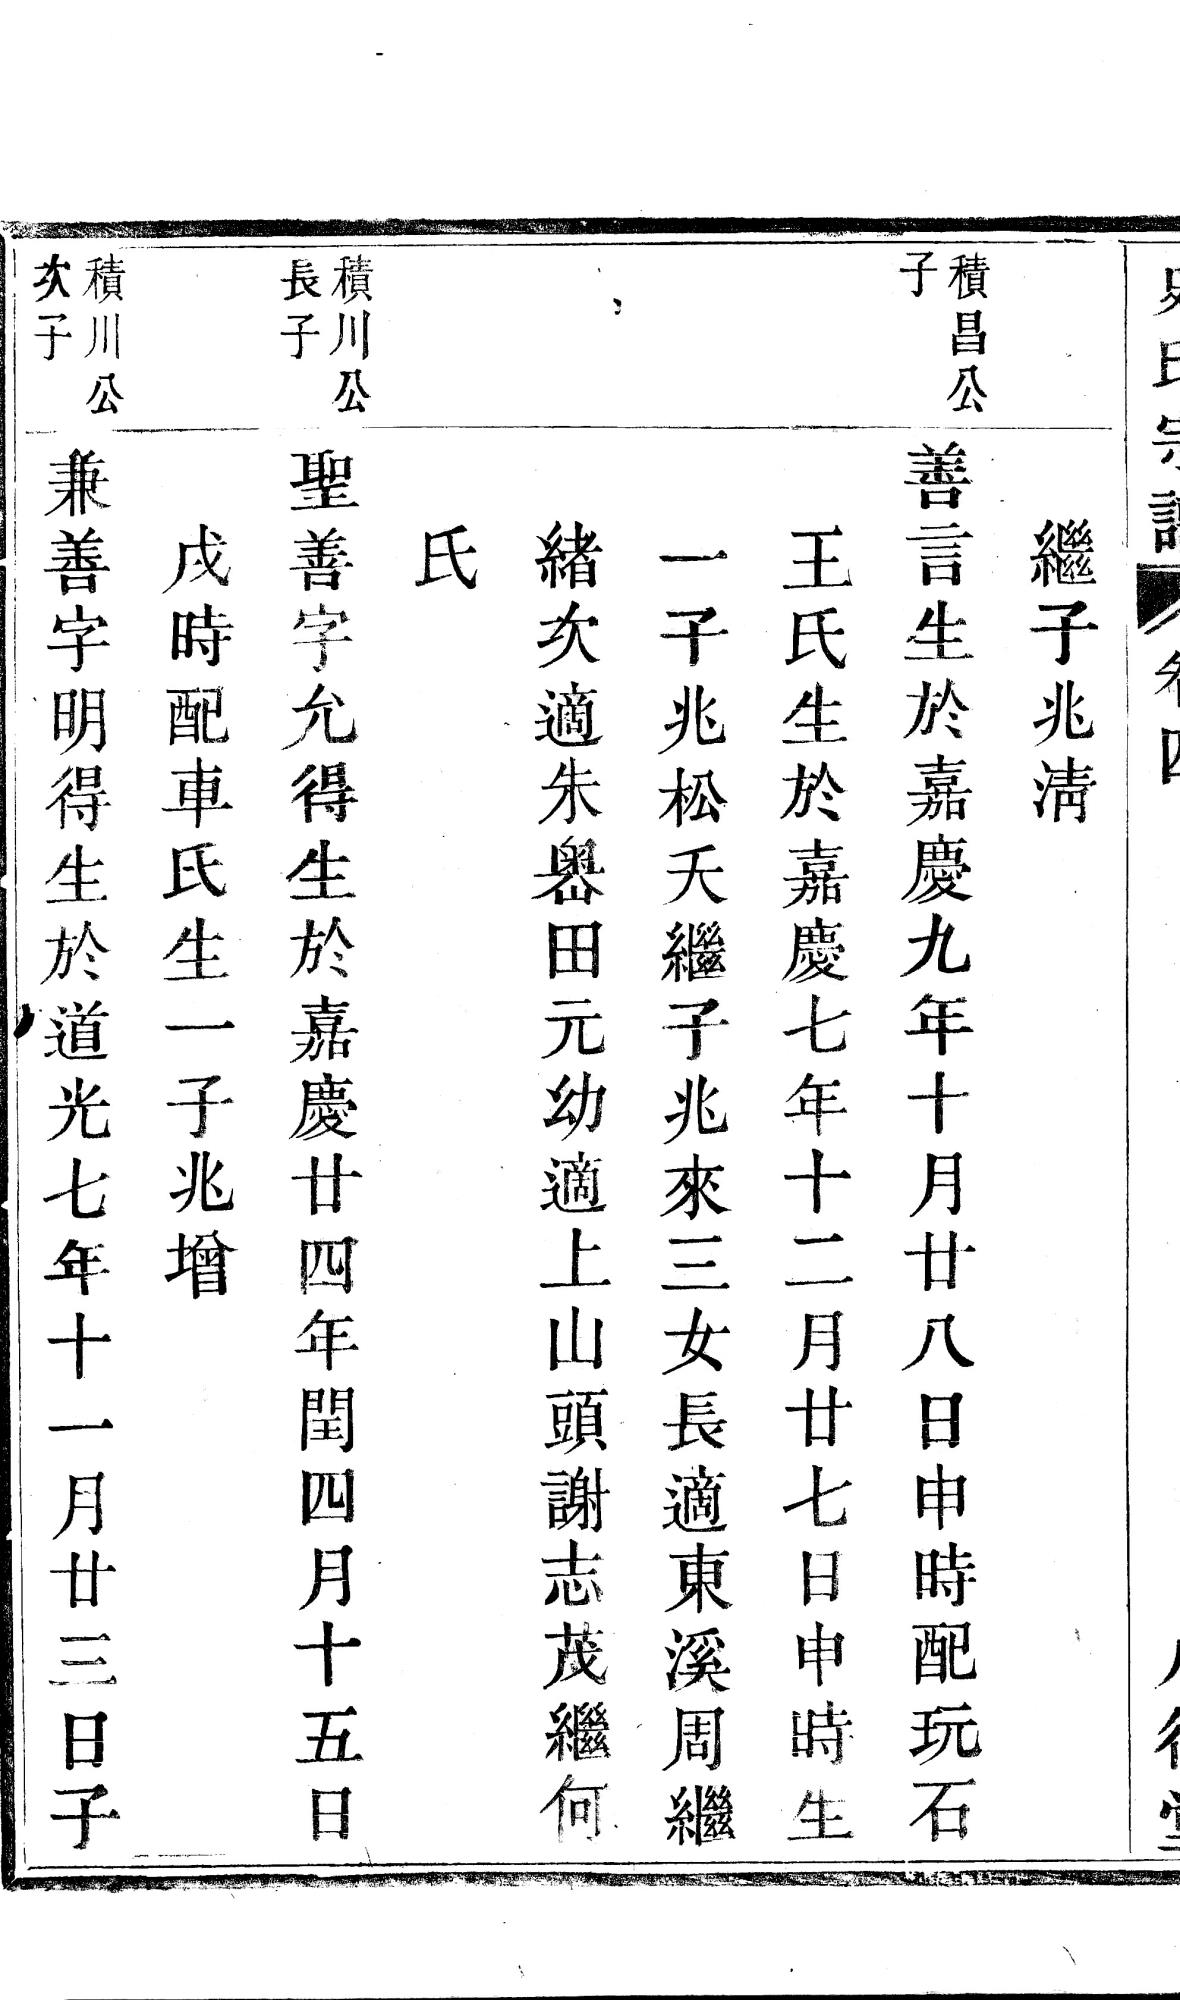 繼子兆淸
積昌公
子
善言生於嘉慶九年十月廿八日申時配玩石
王氏生於嘉慶七年十二月廿七日申時生
一子兆松夭繼子兆來三女長適東溪周繼
緒次適朱嶴田元幼適上山頭謝志茂繼何
氏
積川公
長子
聖善字允得生於嘉慶廿四年閏四月十五日
戌時配車氏生一子兆增
積川公
次子
兼善字明得生於道光七年十一月廿三日子